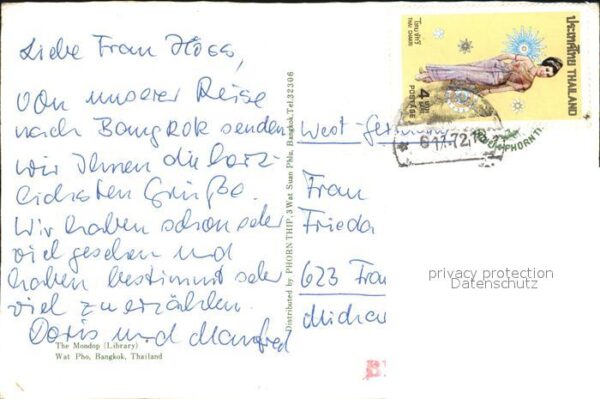 Liebe Frau Höss,
von unserer Reise
nach Bangkok senden
wir Ihnen die herz-
lichsten Grüße.
Wir haben schon sehr
viel gesehen und
haben bestimmt sehr
viel zu erzählen.
Doris und Manfred
The Mondop (Library)
Wat Pho, Bangkok, Thailand
Distributed by PHORN THIP, 3 Wat Suan Phlu, Bangkok. Tel. 32306
ประเทศไทย THAILAND
ไทยจักรี
THAI CHAKRI
4 BAHT
POSTAGE
West-Germany
Frau
Frieda
623 Fra
Michae
privacy protection
Datenschutz